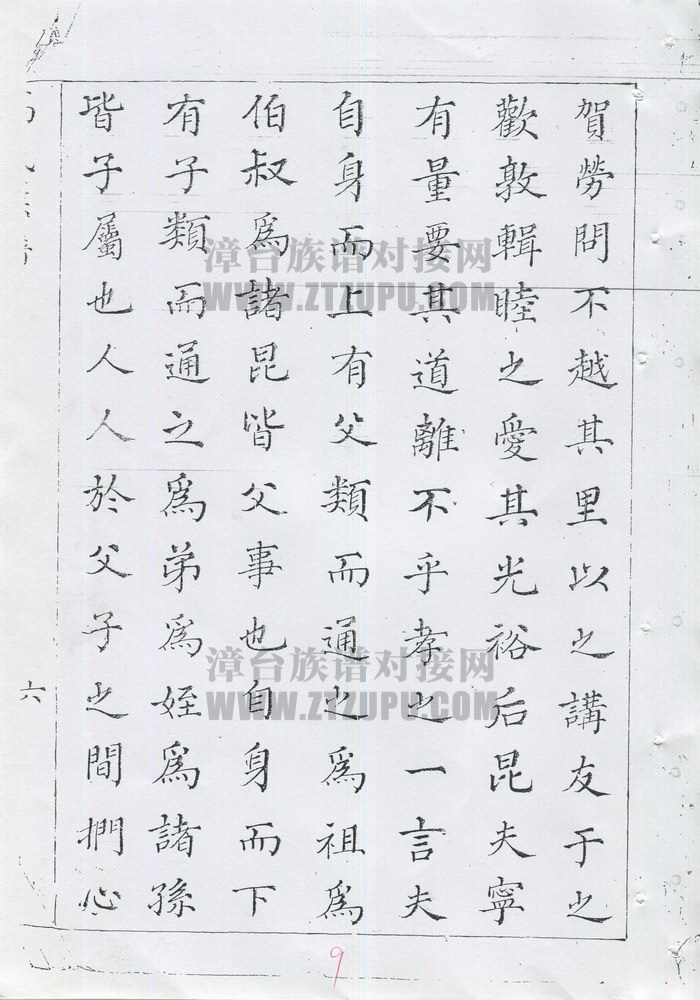 賀勞問不越其里以之講友于之
歡敦輯睦之愛其光裕后昆夫寧
有量要其道離不乎孝之一言夫
自身而上有父類而通之為祖為
伯叔為諸昆皆父事也自身而下
有子類而通之為弟為姪為諸孫
皆子屬也人人於父子之間捫心
六
9
漳台族谱对接网
WWW.ZTZUPU.COM
漳台族谱对接网
WWW.ZTZUPU.COM